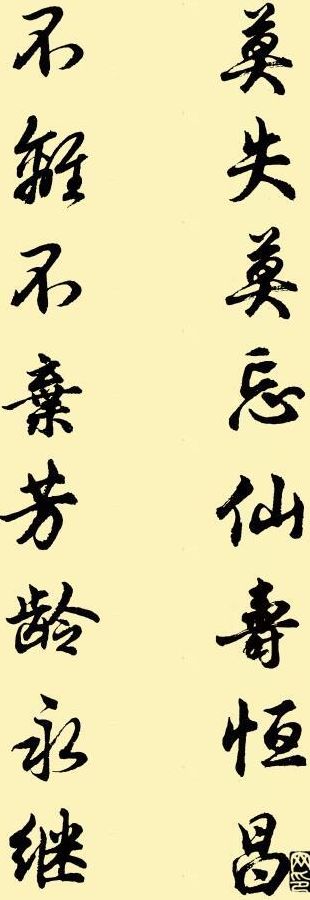 莫失莫忘仙壽恒昌
不離不棄芳龄永继